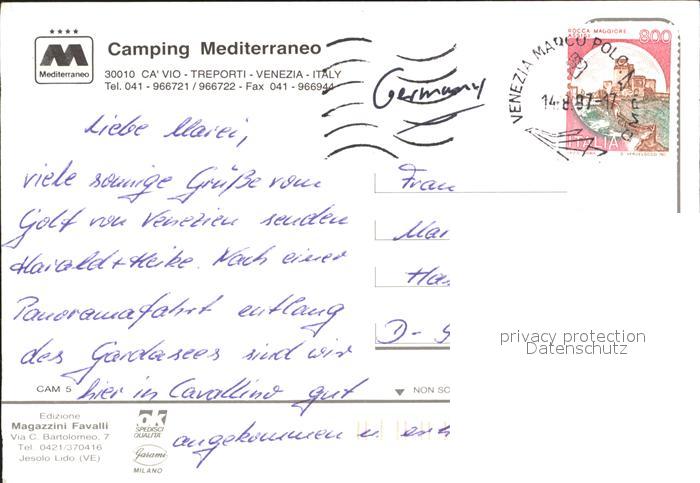 Camping Mediterraneo
Mediterraneo
30010 CA' VIO - TREPORTI - VENEZIA - ITALY
Tel. 041 - 966721 / 966722 - Fax 041 - 966944
Germany
VENEZIA MARCO POLO
14.8.97-17
ROCCA MAGGIORE
800
ITALIA
Liebe Mariei,
viele sonnige Grüße vom
Golf von Venezien senden
Harald + Heike. Nach einer
Panoramafahrt entlang
des Gardasees sind wir
hier in Cavallino gut
angekommen u.
Frau
Mar
Has
D-
privacy protection
Datenschutz
CAM 5
NON SC
Edizione
Magazzini Favalli
Via C. Bartolomeo, 7
Tel. 0421/370416
Jesolo Lido (VE)
ok
SPEDISCI
QUALITA'
Garami
MILANO